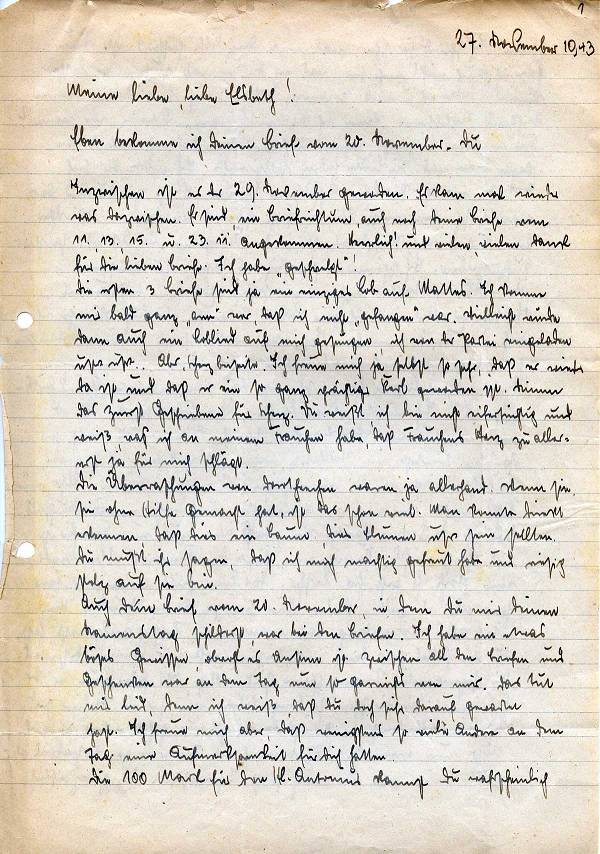 1
27. November 1943
Meine liebe, liebe Elsbeth!
Eben bekomme ich deinen Brief vom 20. November. Du
Inzwischen ist es der 29. November geworden. Es kam mal wieder
was dazwischen. Es sind auch noch deine Briefe vom
11., 13., 15. u. 23.11. angekommen. Herrlich! und vielen, vielen Dank
für die lieben Briefe. Ich habe „geschwelgt“!
Die ersten 3 Briefe sind ja ein einziges Lob auf Mattes. Ich komme
mir bald ganz „arm“ vor daß ich nicht „gefangen“ war. Vielleicht würde
dann auch ein Loblied auf mich gesungen, ich von der Partei eingeladen
usw. usw.. Aber Scherz beiseite. Ich freue mich ja selbst so sehr, daß er wieder
da ist und daß er ein so ganz prächtiger Kerl geworden ist. Nimm
das zuerst Geschriebene für Scherz. Du weißt, ich bin nicht eifersüchtig und
weiß, was ich an meinem Frauchen habe, daß Frauchens Herz zu aller-
erst ja für mich schlägt.
Die Überraschungen von waren ja allerhand. Wenn sie
sie ohne Hilfe gemacht hat, ist das schon viel. Man konnte direkt
erkennen, daß dies ein Baum, dies Blumen usw. sein sollten.
Du mußt ihr sagen, daß ich mich mächtig gefreut habe und riesig
stolz auf sie bin.
Auch dein Brief vom 20. November, in dem Du mir deinen
Namenstag schilderst war bei den Briefen. Ich habe ein etwas
böses Gewissen obwohl es zwischen all den Briefen und
Geschenken war an dem Tag nun so garnichts von mir. Das tut
mir leid, denn ich weiß daß du doch sehr darauf gewartet
hast. Ich freue mich aber daß wenigstens so viele Andere an dem
Tag eine Aufmerksamkeit für dich hatten.
Die 100 Mark für den Hl. Antonius kannst Du wahrscheinlich